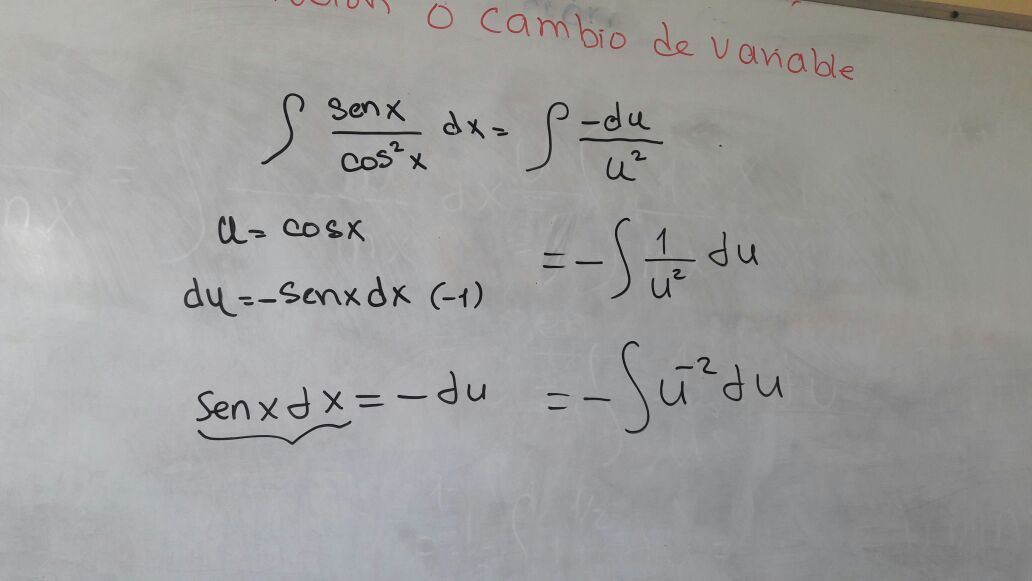 o cambio de variable
∫ senx/cos²x dx = ∫ -du/u²
u = cosx
= -∫ 1/u² du
du = -senxdx (-1)
senxdx = -du
= -∫ u⁻² du